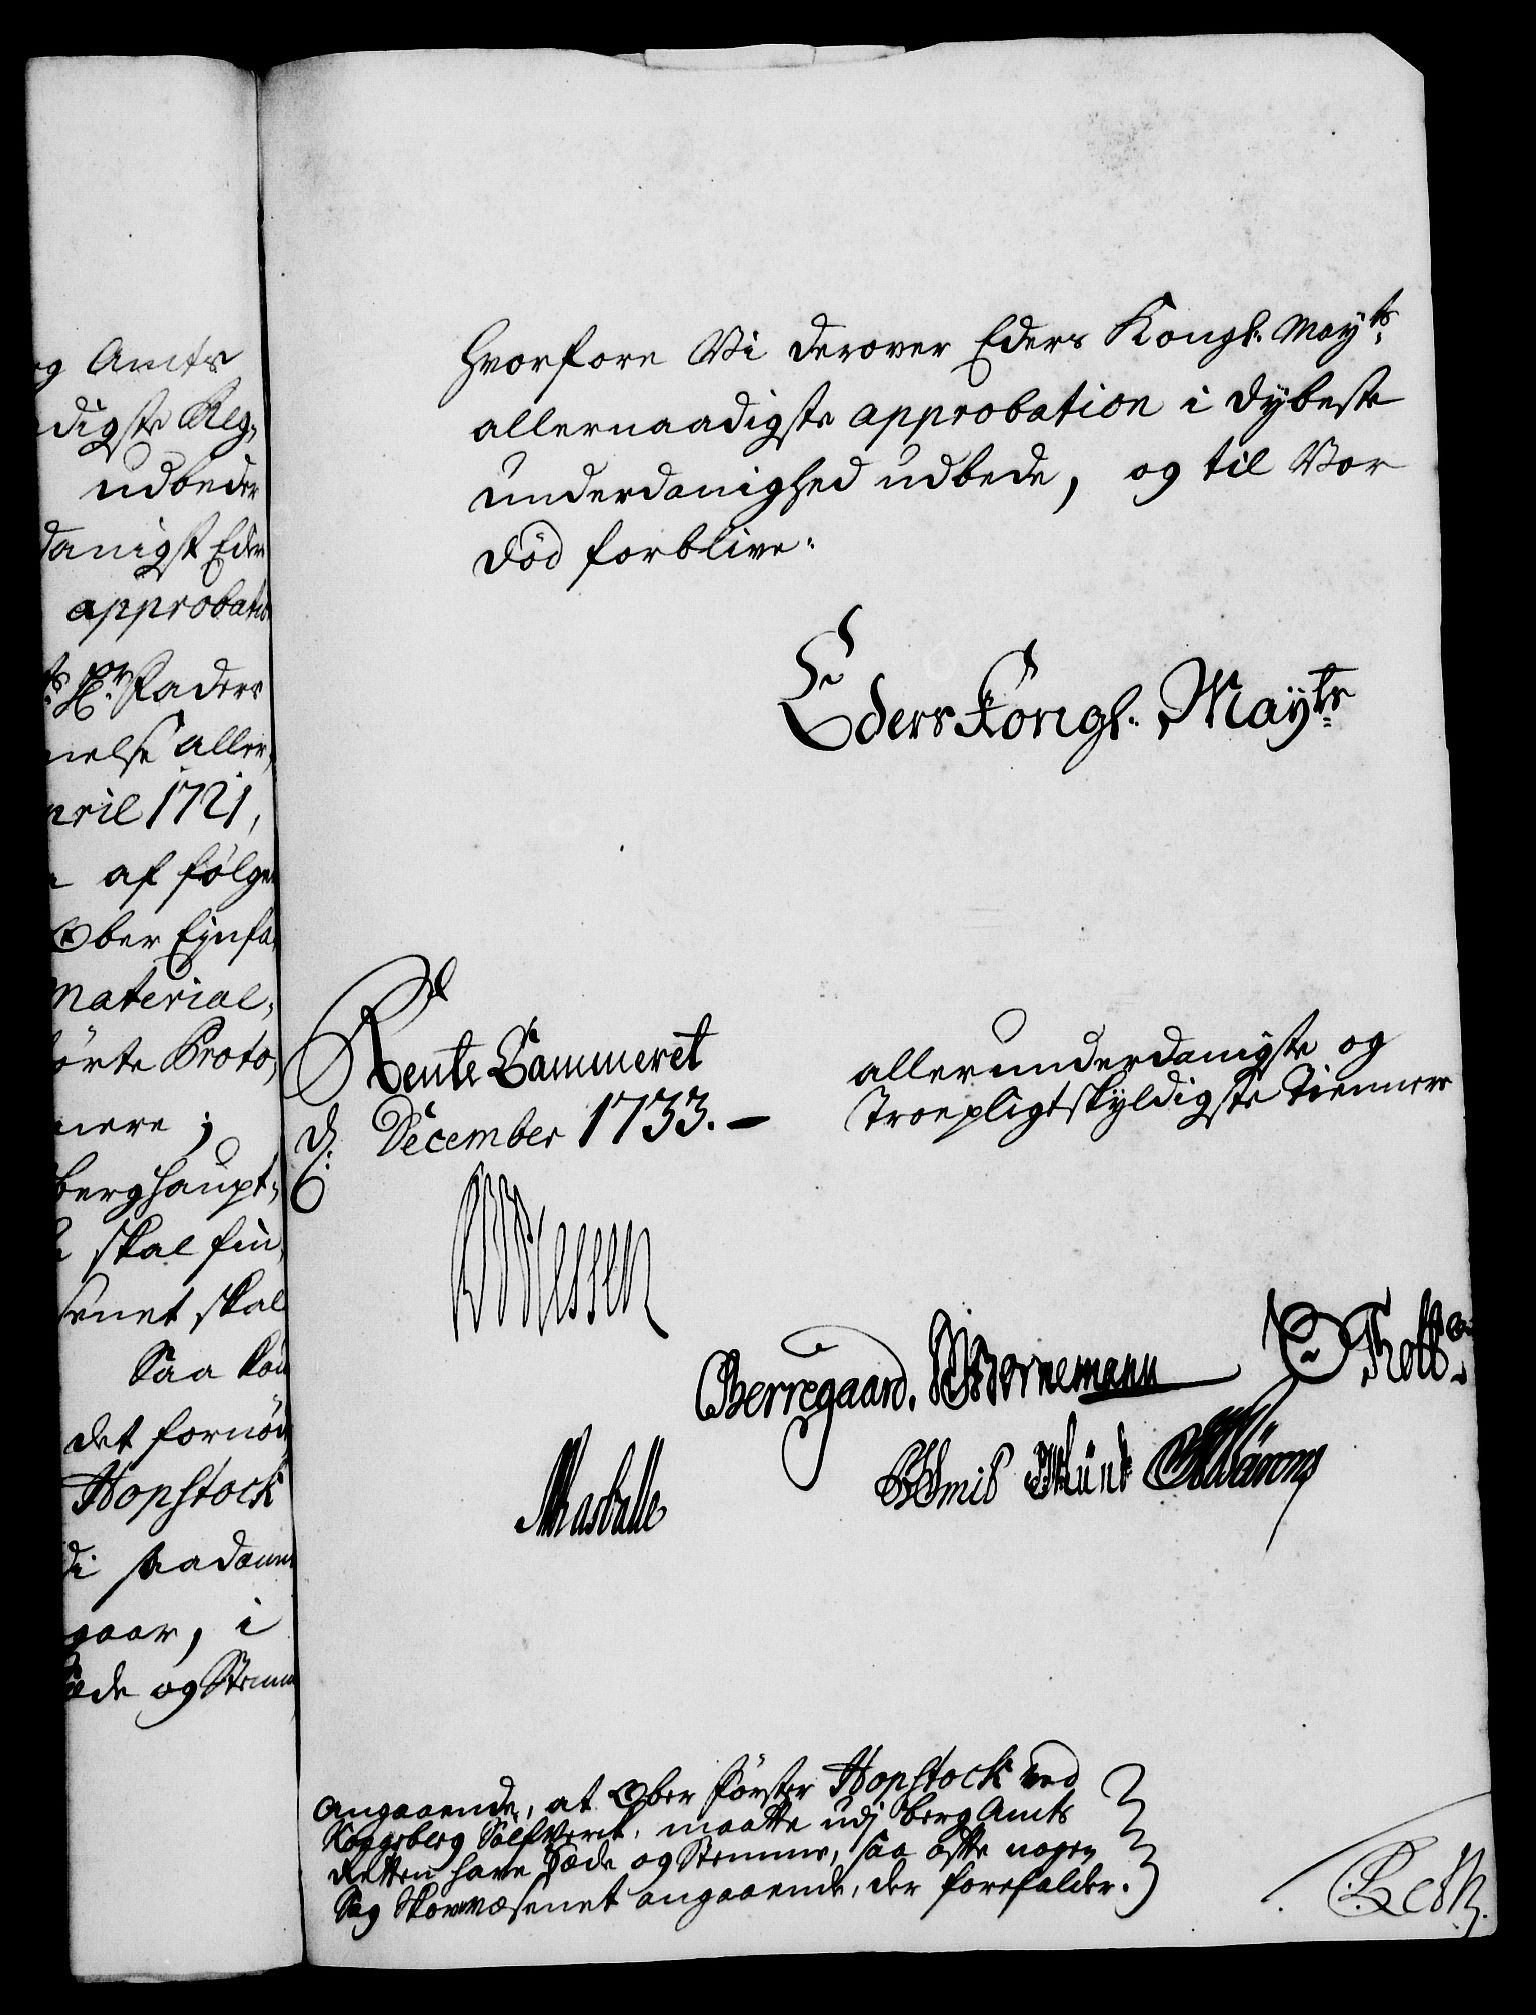 og Amts
digste Reg-
udbeder
danigst Eder
approbati
Hr. Faders
nelse aller-
pril 1721,
af følgen
Ober Einfa
Material-
ørte Proto-
nere ;
berghaupt-
skal fin-
senet skal
Saa kon
det fornød
Hopstock
di saadann
gaar, i
æde og Stemm
hvorfore Vi derover Eders Kongl. Mayts.
allernaadigste approbation i dybeste
underdanighed udbede, og til Vor
død forblive.
Eders Kongl. Mayts
Rente Cammeret
d: December 1733. –
6
allerunderdanigste og
Troepligtskyldigste Tiennere
Berregaard. Bornemann Thott.
Smid Munk
Angaaende, at Ober Förster Hopstock ved
Kongsberg Sølfverk, maatte udj berg Amts
Retten have Sæde og Stemme, saa ofte nogen
Sag Skovvæsenet angaaende, der forefalder.